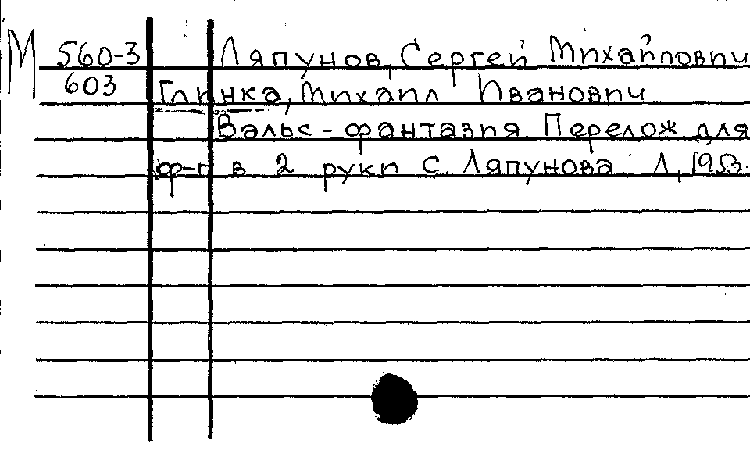 М 560-3 Ляпунов, Сергей Михайлович
603 Глинка, Михаил Иванович
Вальс-фантазия Перелож для
ф-п в 2 руки С. Ляпунова Л, 1953.